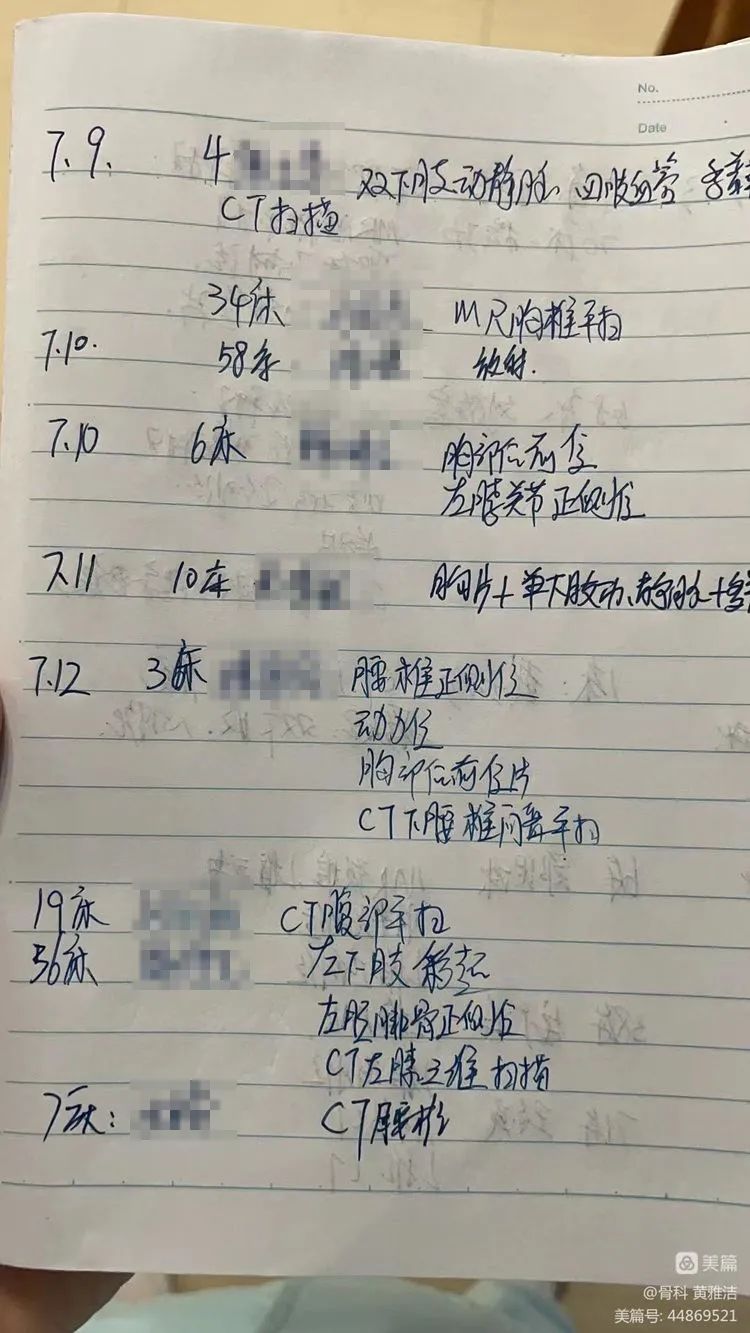 No.
Date
7.9. 4 双下肢动静脉 四肢血管
CT扫描
34床 MR胸椎平扫
7.10. 58床 放射.
7.10 6床 胸部后前位
左膝关节正侧位
7.11 10床 胸片+单下肢动、静脉+
7.12 3床 腰椎正侧位
动力位
胸部后前位片
CT下腰椎间盘平扫
19床 CT腹部平扫
56床 左下肢彩超
左胫腓骨正侧位
CT左膝三维扫描
7床: CT腰椎
美篇
@骨科 黄雅洁
美篇号: 44869521